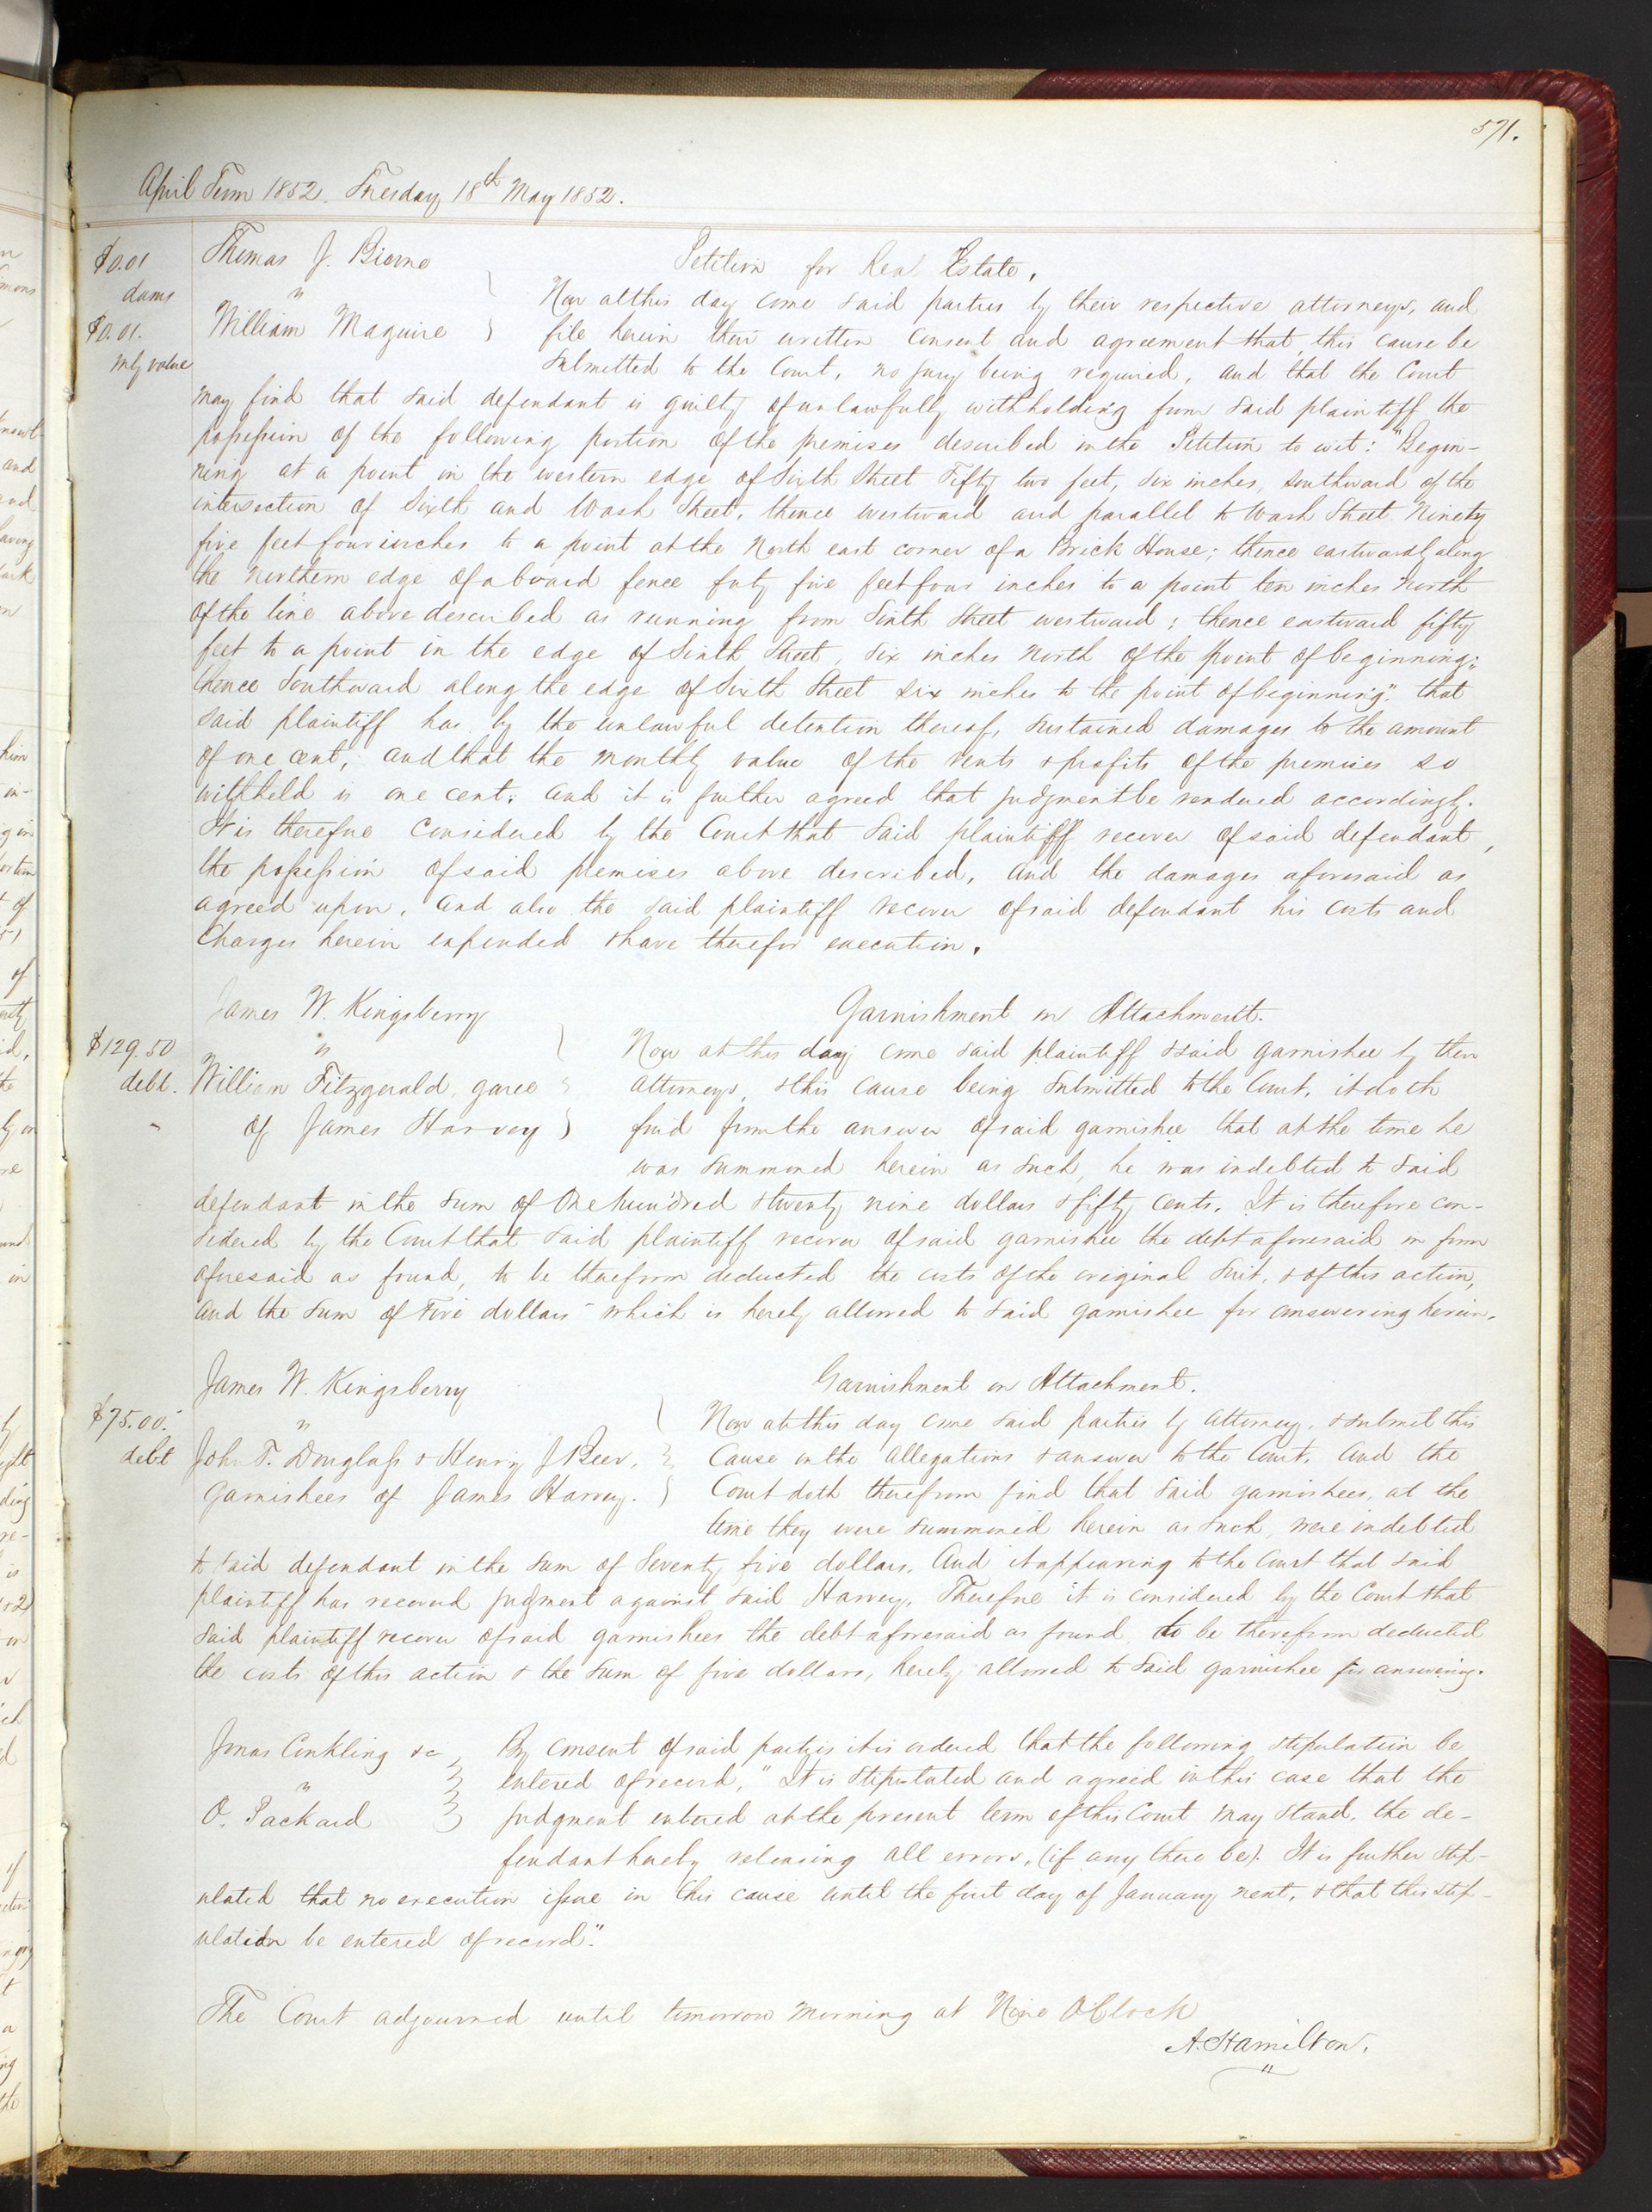 571.
April Term 1852. Tuesday 18th May 1852.
$0.01
dams
$0.01.
mly value
Thomas J. Bierne
vs
William Maguire
Petition for Real Estate.
Now at this day come said parties by their respective attorneys, and
file herein their written consent and agreement that this cause be
submitted to the Court, no jury being required, and that the Court
may find that said defendant is guilty of unlawfully withholding from said plaintiff the
possession of the following portion of the premises described in the Petition to wit: "Begin-
ning at a point in the western edge of Sixth Street Fifty two feet, six inches, southward of the
intersection of Sixth and Wash Street, thence westward and parallel to Wash Street Ninety
five feet four inches to a point at the North east corner of a Brick House; thence eastwardly along
the northern edge of a board fence forty five feet four inches to a point ten inches North
of the line above described as running from Sixth Street westward; thence eastward fifty
feet to a point in the edge of Sixth Street, six inches North of the point of beginning;
thence Southward along the edge of Sixth Street six inches to the point of beginning", that
said plaintiff has by the unlawful detention thereof, sustained damages to the amount
of one cent, and that the monthly value of the rents & profits of the premises so
withheld is one cent; and it is further agreed that judgment be rendered accordingly.
It is therefore considered by the Court that said plaintiff recover of said defendant,
the possession of said premises above described, and the damages aforesaid as
agreed upon, and also the said plaintiff recover of said defendant his costs and
charges herein expended & have therefor execution.
$129.50
debt.
James W. Kingsberry
vs
William Fitzgerald, garee
of James Harvey
Garnishment on Attachment.
Now at this day come said plaintiff & said garnishee by their
attorneys, & this cause being submitted to the Court, it doth
find from the answer of said garnishee that at the time he
was summoned herein as such, he was indebted to said
defendant in the sum of One hundred & twenty nine dollars & fifty cents. It is therefore con-
sidered by the Court that said plaintiff recover of said garnishee the debt aforesaid in form
aforesaid as found, to be therefrom deducted the costs of the original suit, & of this action,
and the sum of Five dollars which is hereby allowed to said garnishee for answering herein.
$75.00.
debt
James W. Kingsberry
vs
John T. Douglass & Henry J Beer,
Garnishees of James Harvey.
Garnishment on Attachment.
Now at this day come said parties by attorney, & submit this
cause on the allegations & answer to the Court, and the
Court doth therefrom find that said garnishees, at the
time they were summoned herein as such, were indebted
to said defendant in the sum of Seventy five dollars. And it appearing to the Court that said
plaintiff has recovered judgment against said Harvey, Therefore it is considered by the Court that
said plaintiff recover of said garnishees the debt aforesaid as found, to be therefrom deducted
the costs of this action & the sum of five dollars, hereby allowed to said garnishee for answering.
Jonas Conkling &c
vs
O. Packard
By consent of said parties it is ordered that the following stipulation be
entered of record, "It is stipulated and agreed in this case that the
judgment entered at the present term of this Court may stand, the de-
fendant hereby releasing all errors, (if any there be). It is further stip-
ulated that no execution issue in this cause until the first day of January next, & that this stip-
ulation be entered of record".
The Court adjourned until tomorrow morning at Nine OClock
A. Hamilton.